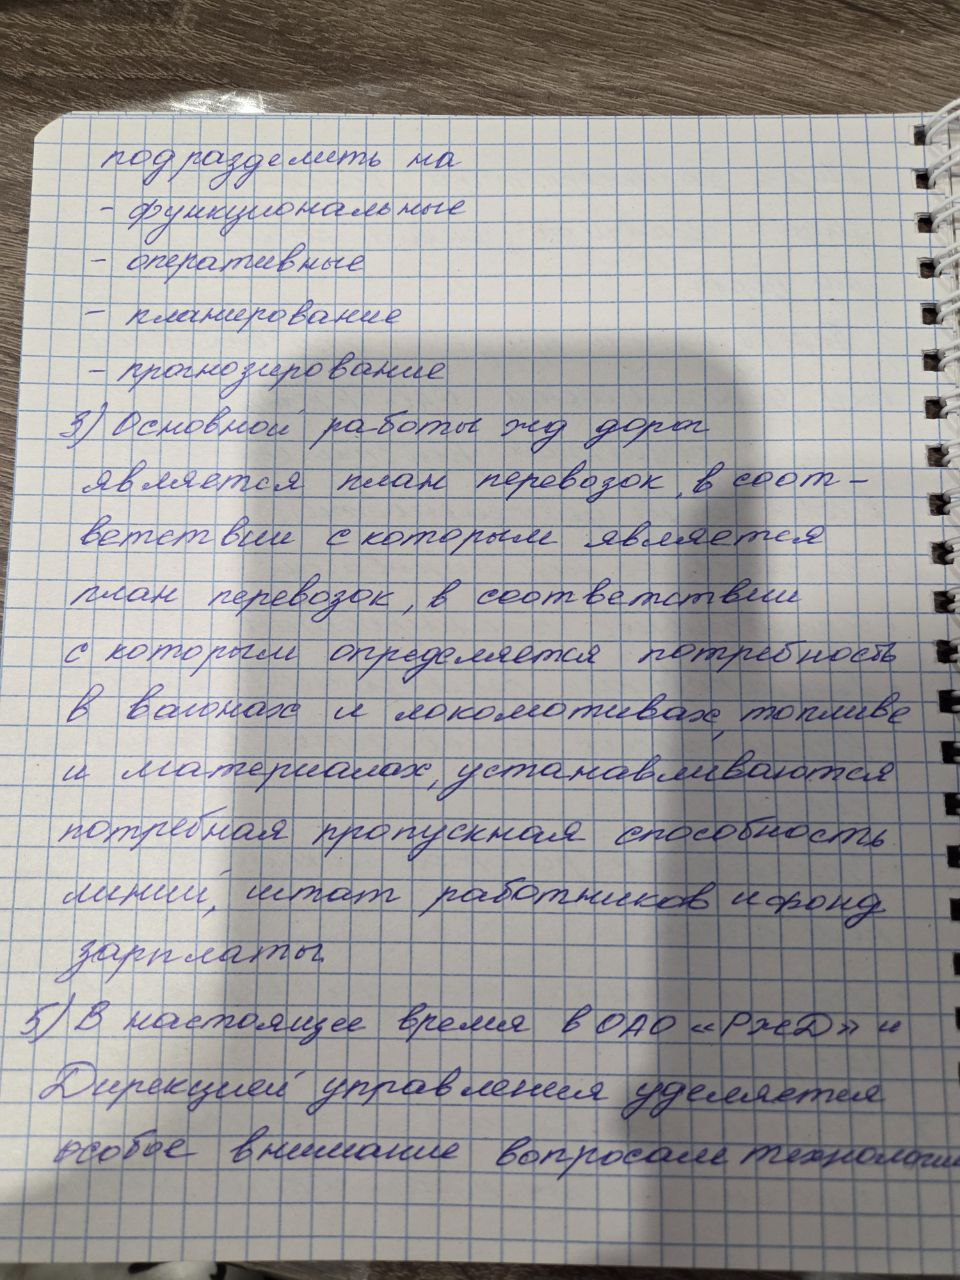 подразделить на
- функциональные
- оперативные
- планирование
- прогнозирование
3) Основной работы жд дорог
является план перевозок, в соот-
ветствии с которым является
план перевозок, в соответствии
с которым определяется потребность
в вагонах и локомотивах, топливе
и материалах, устанавливаются
потребная пропускная способность
линий, штат работников и фонд
зарплаты
5) В настоящее время в ОАО «РЖД» и
Дирекцией управления уделяется
особое внимание вопросам технологии